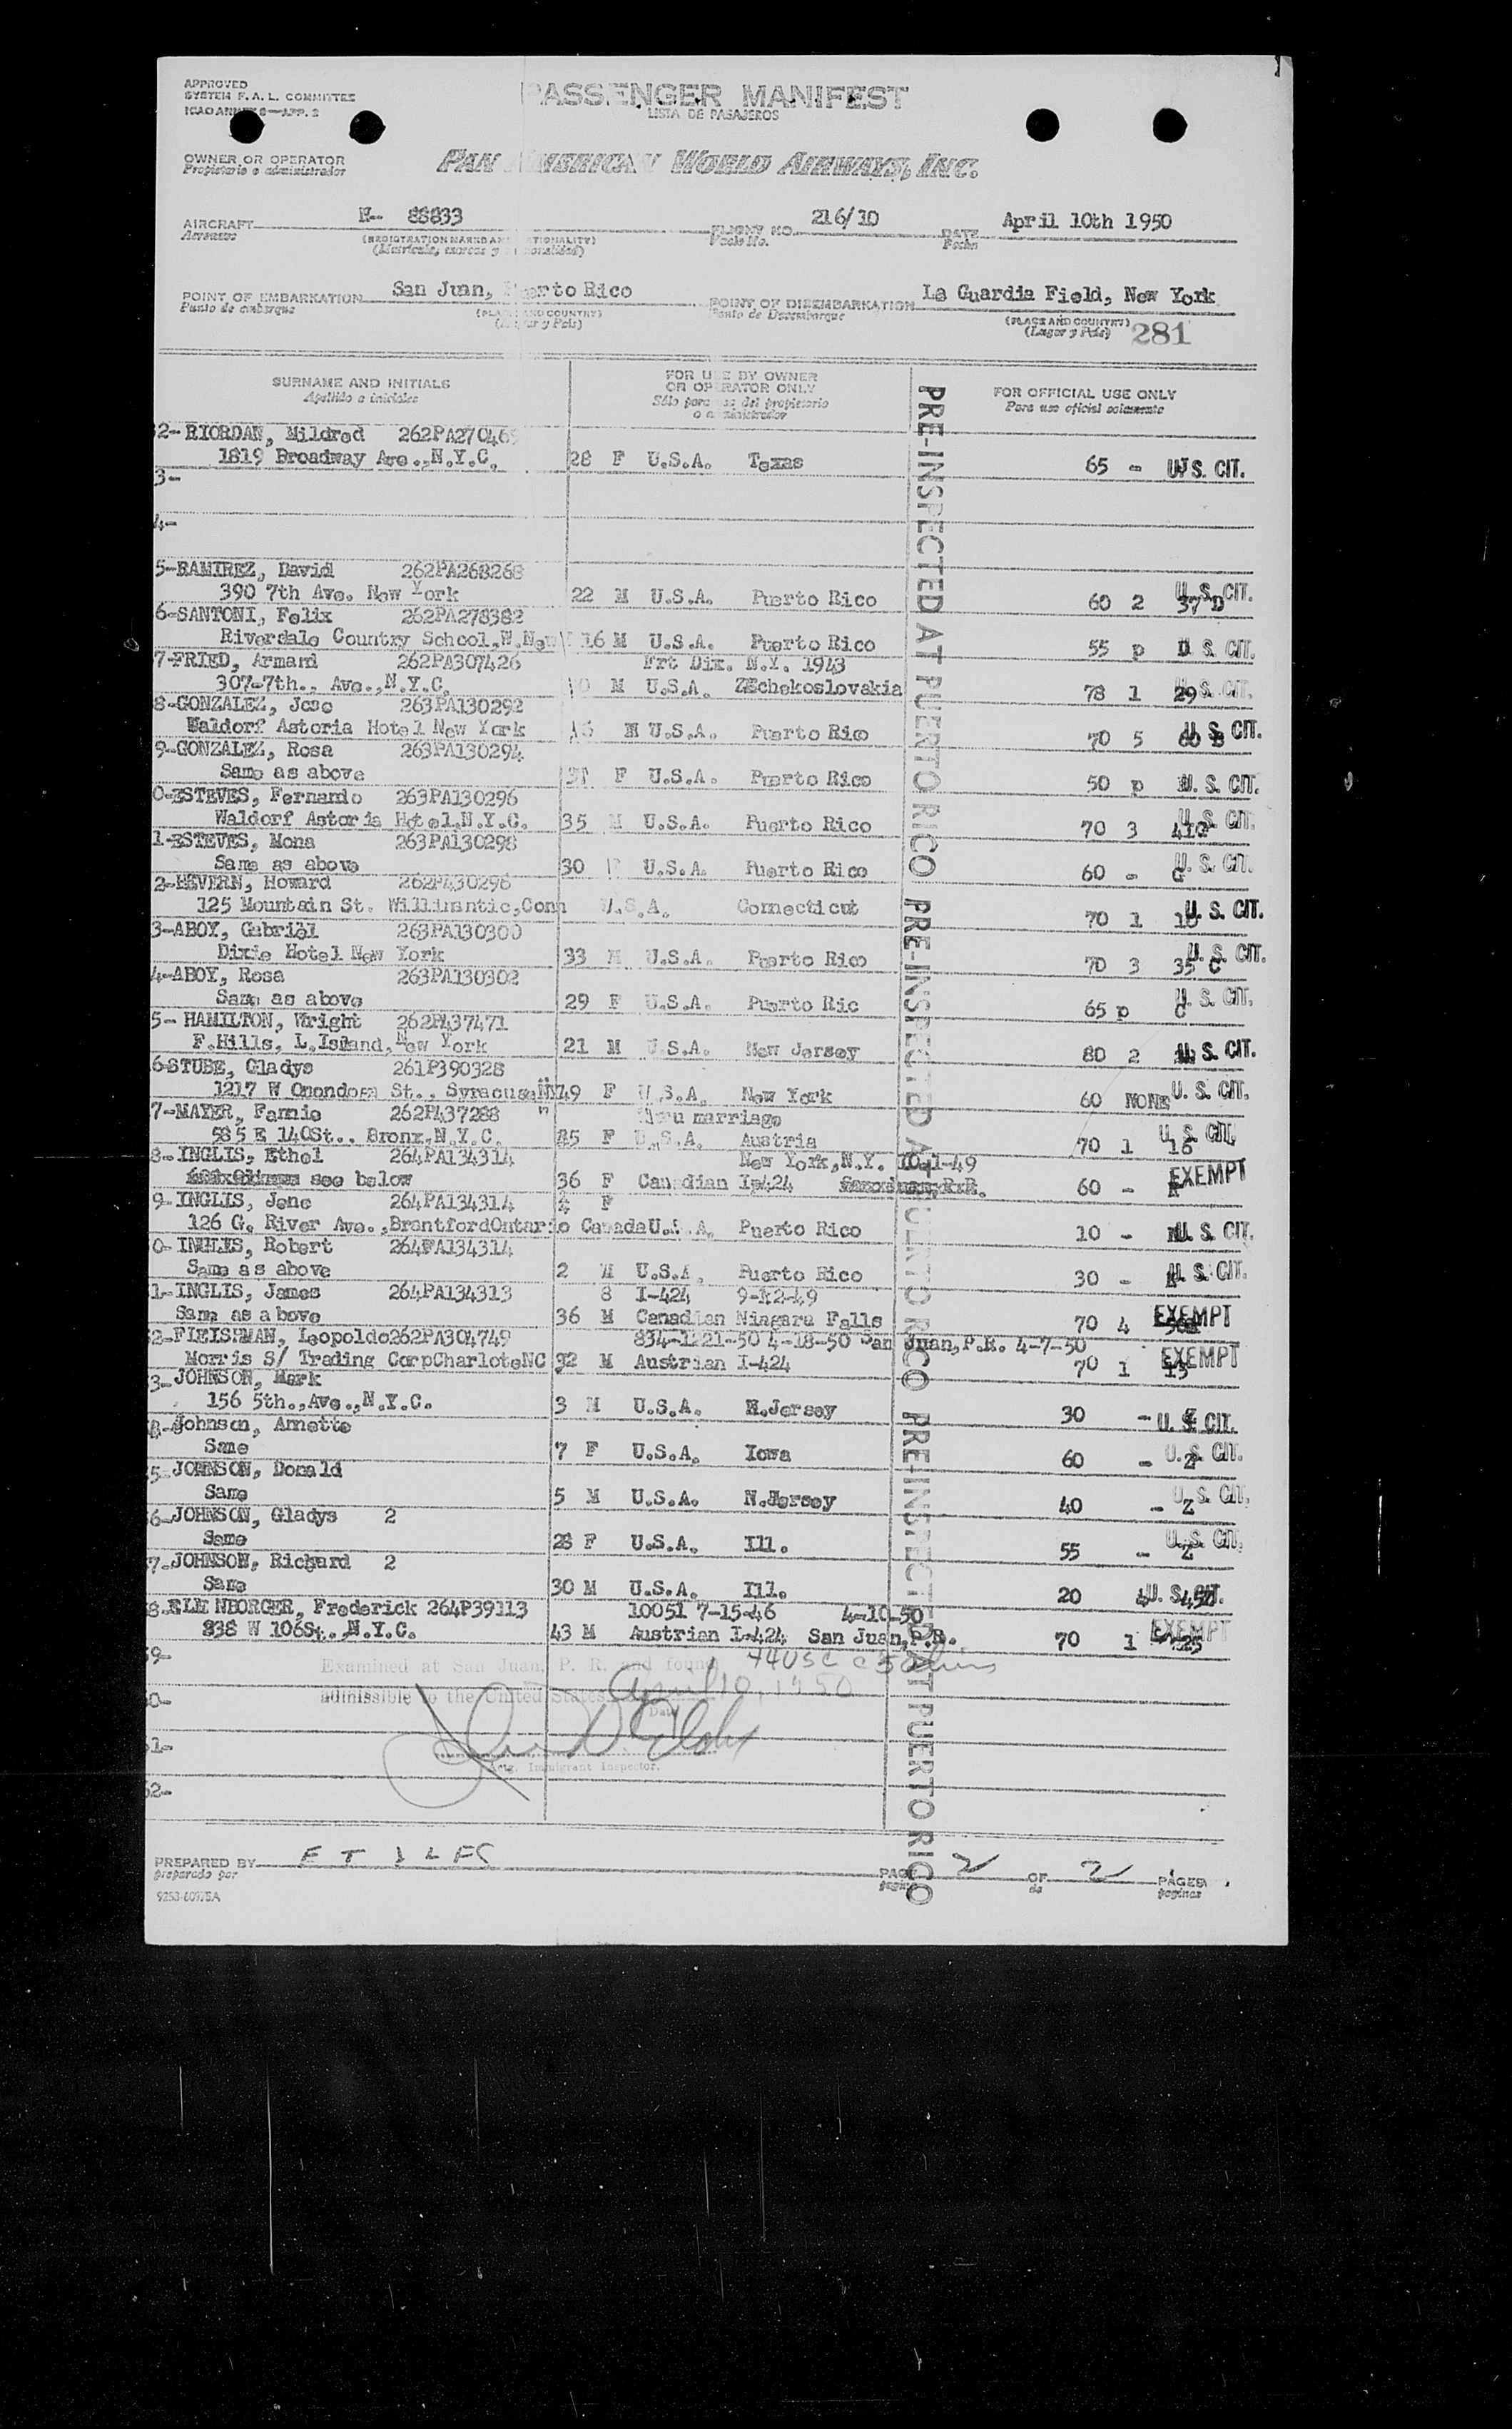 APPROVED
SYSTEM F. A. L. COMMITTEE
ICAO ANNEX 9—APP. 2
PASSENGER MANIFEST
LISTA DE PASAJEROS
OWNER OR OPERATOR
Propietario o administrador
PAN AMERICAN WORLD AIRWAYS, INC.
AIRCRAFT 88833 FLIGHT NO. 216/10 DATE April 10th 1950
Aeronave (REGISTRATION MARKS AND NATIONALITY) Vuelo No. Fecha
(Matricula, marcas y nacionalidad)
POINT OF EMBARKATION San Juan, Puerto Rico POINT OF DISEMBARKATION La Guardia Field, New York
Punto de embarque (PLACE AND COUNTRY) Punto de Desembarque (PLACE AND COUNTRY)
(Lugar y Pais) (Lugar y Pais) 281
SURNAME AND INITIALS FOR USE BY OWNER OR OPERATOR ONLY FOR OFFICIAL USE ONLY
Apellido e iniciales Sólo para uso del propietario o administrador Para uso oficial solamente
PRE-INSPECTED AT PUERTO RICO PRE-INSPECTED AT PUERTO RICO PRE-INSPECTED AT PUERTO RICO
2- RIORDAN, Mildred 262PA27046
1819 Broadway Ave.,N.Y.C. 28 F U.S.A. Texas 65 - U.S. CIT.
3-
4-
5-RAMIREZ, David 262PA268268
390 7th Ave. New York 22 M U.S.A. Puerto Rico 60 2 37 D U. S. CIT.
6-SANTONI, Felix 262PA278382
Riverdale Country School,N.New 16 M U.S.A. Puerto Rico 55 p D U. S. CIT.
7-FRIED, Armand 262PA307426 Frt Dix. N.Y. 1943
307-7th., Ave.,N.Y.C. M U.S.A. ZEchekoslovakia 78 1 29 U. S. CIT.
8-GONZALEZ, Jose 263PA130292
Waldorf Astoria Hotel New York M U.S.A. Puerto Rico 70 5 60 B U. S. CIT.
9-GONZALEZ, Rosa 263PA130294
Same as above F U.S.A. Puerto Rico 50 p U. S. CIT.
0-ESTEVES, Fernando 263PA130296
Waldorf Astoria Hotel,N.Y.C. 35 M U.S.A. Puerto Rico 70 3 U. S. CIT.
1-ESTEVES, Mona 263PA130298
Same as above 30 F U.S.A. Puerto Rico 60 - G U. S. CIT.
2-HEVERN, Howard 262P430296
125 Mountain St. Willimantic,Conn U.S.A. Connecticut 70 1 U. S. CIT.
3-ABOY, Gabriel 263PA130300
Dixie Hotel New York 33 M U.S.A. Puerto Rico 70 3 35 C U. S. CIT.
4-ABOY, Rosa 263PA130302
Same as above 29 F U.S.A. Puerto Ric 65 p C U. S. CIT.
5- HAMILTON, Wright 262P437471
F.Hills, L.Island,New York 21 M U.S.A. New Jersey 80 2 U. S. CIT.
6-STUBE, Gladys 261P390328
1217 W Onondoga St., Syracuse,NY 49 F U.S.A. New York 60 NONE U. S. CIT.
7-MAYER, Fannie 262P437288 Thru marriage
585 E 140St., Bronx,N.Y.C. F U.S.A. Austria 70 1 16 U. S. CIT.
8-INGLIS, Ethel 264PA134314 New York,N.Y. 10-1-49
see below 36 F Canadian I-424 60 - EXEMPT
9-INGLIS, Jene 264PA134314 F
126 G. River Ave.,BrantfordOntario Canada U.S.A. Puerto Rico 10 - U. S. CIT.
0- INGLIS, Robert 264PA134314
Same as above 2 M U.S.A. Puerto Rico 30 - U. S. CIT.
1-INGLIS, James 264PA134313 8 I-424 9-12-49
Same as above 36 M Canadian Niagara Falls 70 4 EXEMPT
2-FLEISHMAN, Leopoldo262PA304749 834-1221-50 4-18-50 San Juan,P.R. 4-7-50
Morris S/ Trading CorpCharloteNC 32 M Austrian I-424 70 1 13 EXEMPT
3-JOHNSON, Mark
156 5th.,Ave.,N.Y.C. 3 M U.S.A. N.Jersey 30 - Z U. S. CIT.
4-Johnson, Annette
Same 7 F U.S.A. Iowa 60 - Z U. S. CIT.
5-JOHNSON, Donald
Same 5 M U.S.A. N.Jersey 40 - Z U. S. CIT.
6-JOHNSON, Gladys 2
Same 28 F U.S.A. Ill. 55 - Z U. S. CIT.
7-JOHNSON, Richard 2
Same 30 M U.S.A. Ill. 20 4 U. S. CIT.
8-ELENBORGER, Frederick 264P39113 10051 7-15-46 4-10-50
838 W 106St.,N.Y.C. 43 M Austrian I-424 San Juan,P.R. 70 1 25 EXEMPT
9-
Examined at San Juan, P. R. and found
0- admissible to the United States. April 10, 1950
Date
1-
Actg. Immigrant Inspector.
2-
PREPARED BY PAGE 2 OF 2 PAGES
preparado por pagina de paginas